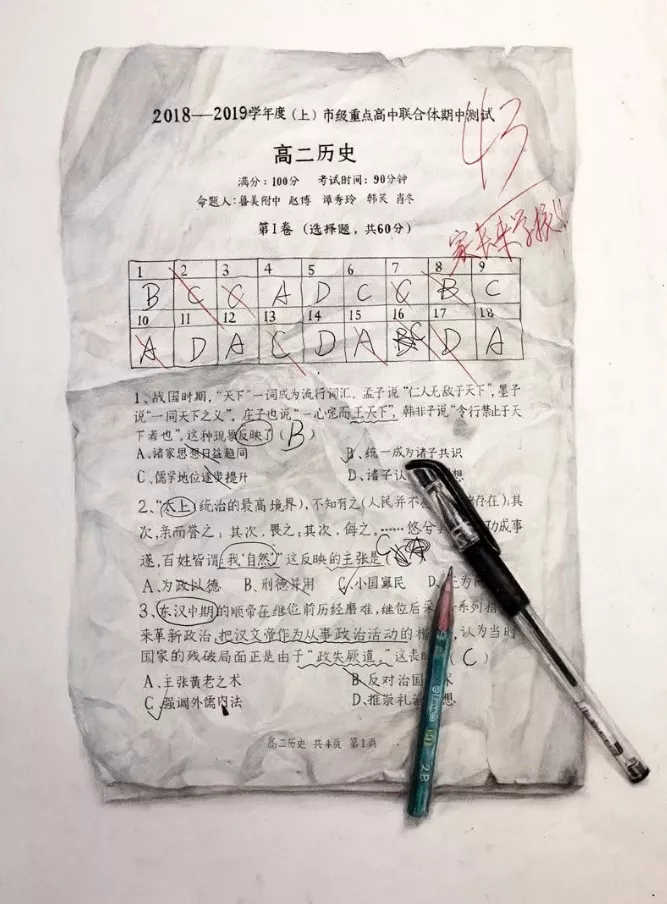 2018——2019学年度（上）市级重点高中联合体期中测试
43
高二历史
满分：100分 考试时间：90分钟
命题人：鲁美附中 赵博 谭秀玲 韩 肖冬
家长来学校!!
第I卷（选择题，共60分）
1 2 3 4 5 6 7 8 9
B C C A D C C B C
10 11 12 13 14 15 16 17 18
A D A C D A C D A
1、战国时期，“天下”一词成为流行词汇，孟子说“仁人无敌于天下”，墨子
说“一同天下之义”，庄子也说“一心定而王天下”，韩非子说“令行禁止于天
下者也”，这种现象反映了（B）
A、诸家思想日益趋同 B、统一成为诸子共识
C、儒学地位逐变提升 D、诸子认 想
2、“太上（统治的最高境界），不知有之（人民并不 存在），其
次，亲而誉之；其次，畏之；其次，侮之。……悠兮 功成事
遂，百姓皆谓‘我自然’”这反映的主张是（C A
A、为政以德 B、刑德并用 C、小国寡民 D、
3、东汉中期的顺帝在继位前历经磨难，继位后采 系列措
来革新政治，把汉文章作为从事政治活动的 ，认为当时
国家的残破局面正是由于“政失厥道，”这表 （C）
A、主张黄老之术 B、反对治国 术
C、强调外儒内法 D、推崇礼治 想
高二历史 共4页 第1页
2B